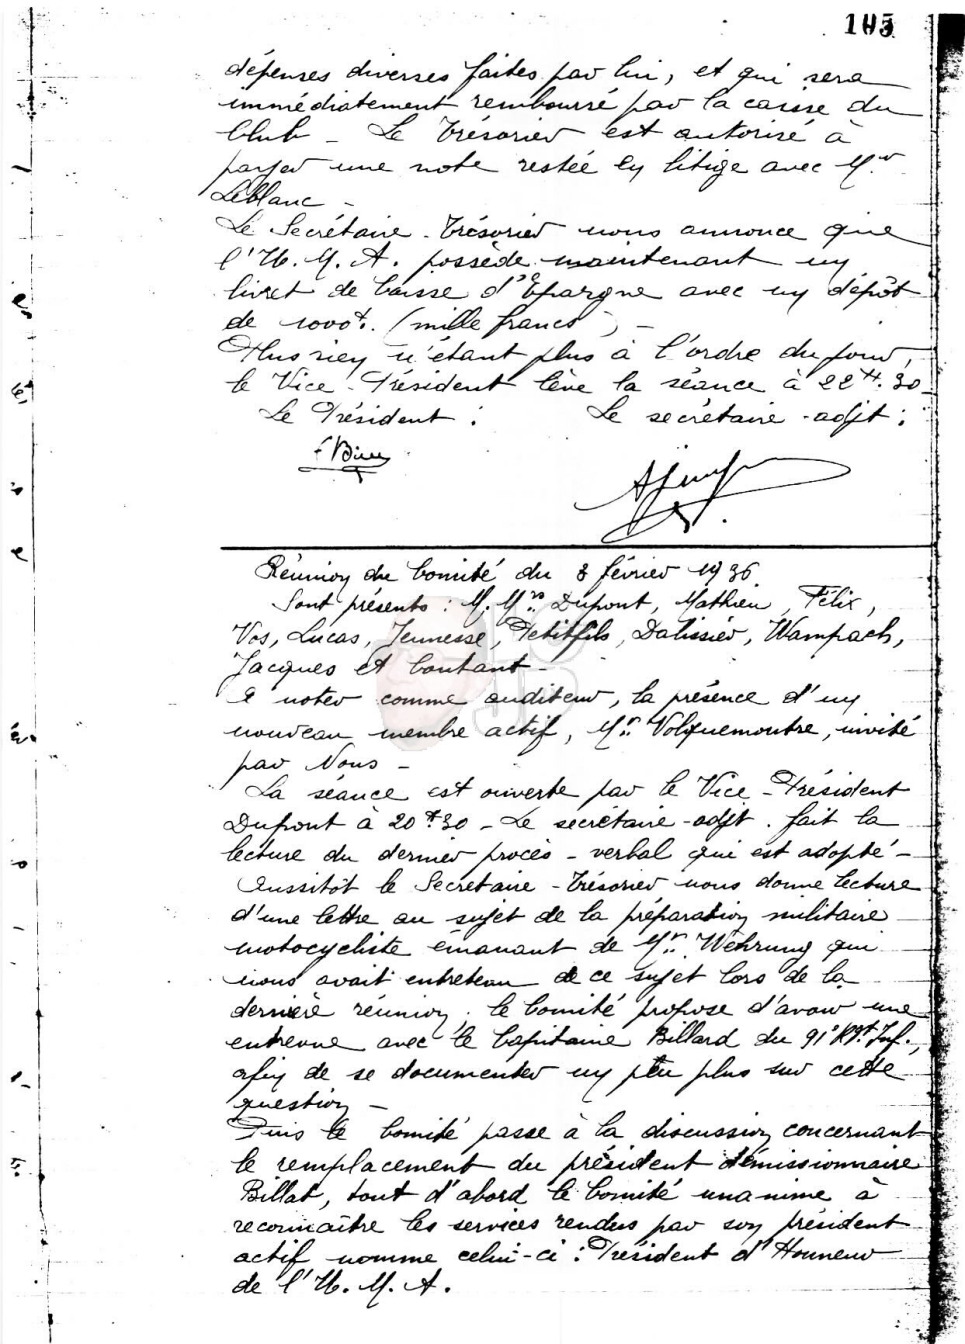 105
dépenses diverses faites par lui, et qui sera
immédiatement remboursé par la caisse du
Club - Le Trésorier est autorisé à
payer une note restée en litige avec Mr
Leblanc -
Le Secrétaire - Trésorier nous annonce que
l'U. M. A. possède maintenant un
livret de Caisse d'Epargne avec un dépôt
de 1000f. (mille francs) -
Plus rien n'étant plus à l'ordre du jour,
le Vice - Président lève la séance à 22H.30
Le Président : Le secrétaire - adjt :
Réunion du Comité du 8 février 1936.
Sont présents : M. Mrs Dupont, Mathieu, Félix,
Vos, Lucas, Jeunesse, Petitfils, Dalissier, Wampach,
Jacques et Coutant -
A noter comme auditeur, la présence d'un
nouveau membre actif, Mr. Volquemoutre, invité
par Nous -
La séance est ouverte par le Vice - Président
Dupont à 20H30 - Le secrétaire - adjt. fait la
lecture du dernier procès - verbal qui est adopté -
Aussitôt le Secrétaire - Trésorier nous donne lecture
d'une lettre au sujet de la préparation militaire
motocycliste émanant de Mr. Wehrung qui
nous avait entretenu de ce sujet lors de la
dernière réunion. le Comité propose d'avoir une
entrevue avec le Capitaine Billard du 91e Rgt. Inf.,
afin de se documenter un peu plus sur cette
question -
Puis le Comité passe à la discussion concernant
le remplacement du président démissionnaire
Billat, tout d'abord le Comité unanime à
reconnaître les services rendus par son président
actif nomme celui-ci : Président d'Honneur
de l'U. M. A.